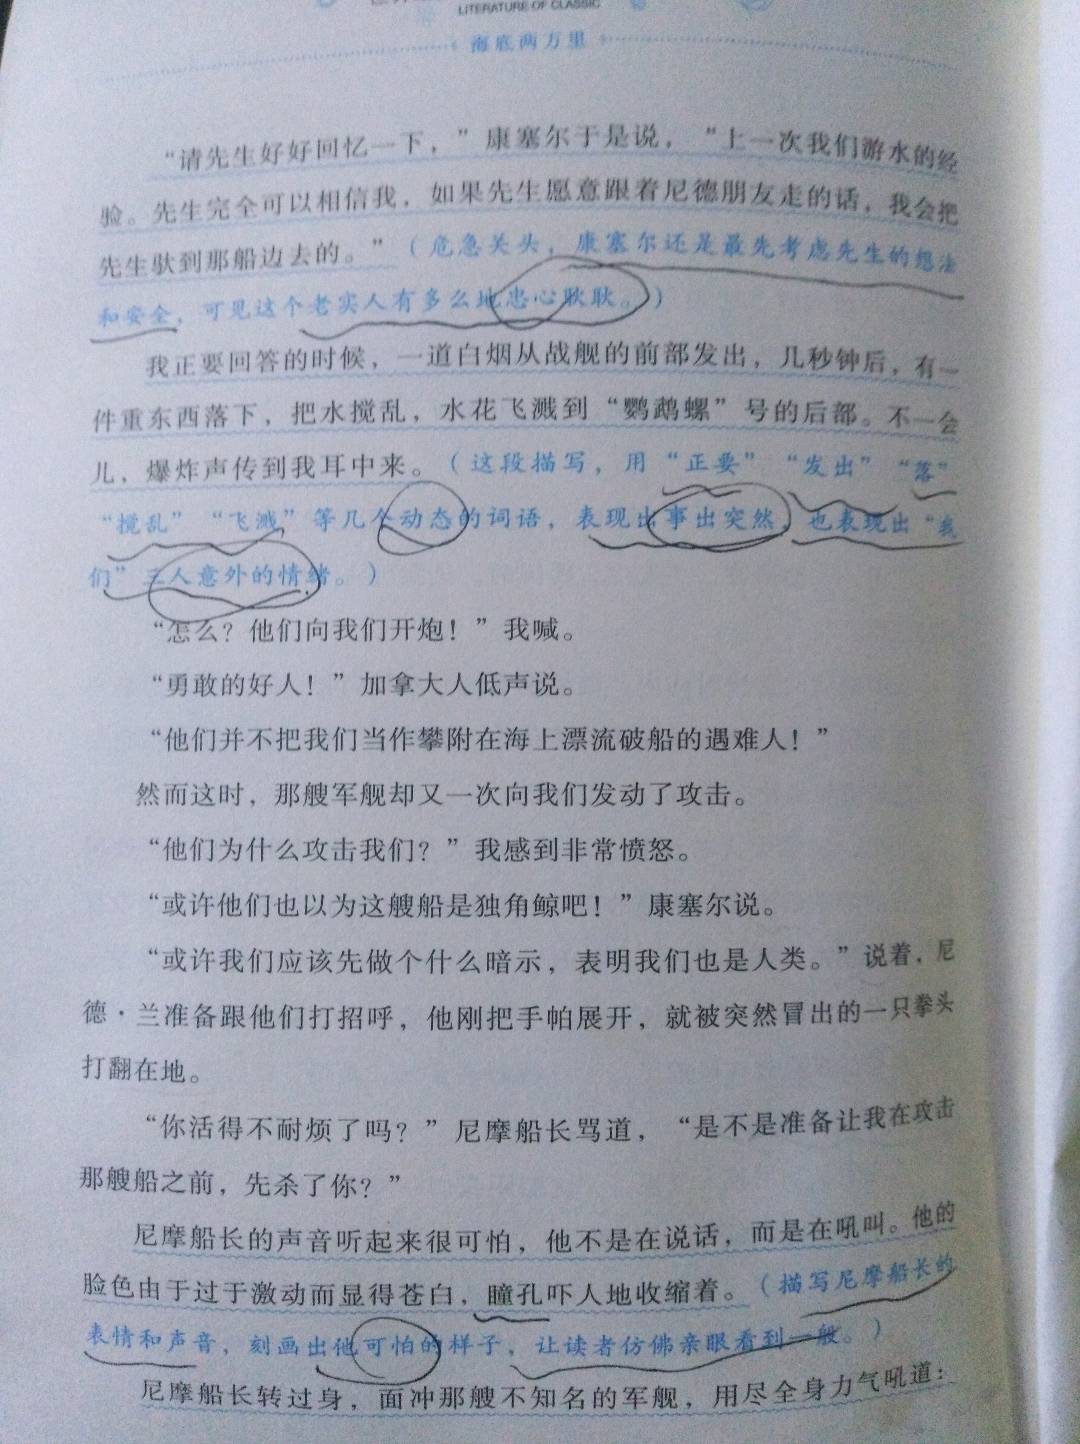 LITERATURE OF CLASSIC
海底两万里
“请先生好好回忆一下，”康塞尔于是说，“上一次我们游水的经
验。先生完全可以相信我，如果先生愿意跟着尼德朋友走的话，我会把
先生驮到那船边去的。”（危急关头，康塞尔还是最先考虑先生的想法
和安全，可见这个老实人有多么地忠心耿耿。）
我正要回答的时候，一道白烟从战舰的前部发出，几秒钟后，有一
件重东西落下，把水搅乱，水花飞溅到“鹦鹉螺”号的后部。不一会
儿，爆炸声传到我耳中来。（这段描写，用“正要”“发出”“落”
“搅乱”“飞溅”等几个动态的词语，表现出事出突然，也表现出“我
们”三人意外的情绪。）
“怎么？他们向我们开炮！”我喊。
“勇敢的好人！”加拿大人低声说。
“他们并不把我们当作攀附在海上漂流破船的遇难人！”
然而这时，那艘军舰却又一次向我们发动了攻击。
“他们为什么攻击我们？”我感到非常愤怒。
“或许他们也以为这艘船是独角鲸吧！”康塞尔说。
“或许我们应该先做个什么暗示，表明我们也是人类。”说着，尼
德·兰准备跟他们打招呼，他刚把手帕展开，就被突然冒出的一只拳头
打翻在地。
“你活得不耐烦了吗？”尼摩船长骂道，“是不是准备让我在攻击
那艘船之前，先杀了你？”
尼摩船长的声音听起来很可怕，他不是在说话，而是在吼叫。他的
脸色由于过于激动而显得苍白，瞳孔吓人地收缩着。（描写尼摩船长的
表情和声音，刻画出他可怕的样子，让读者仿佛亲眼看到一般。）
尼摩船长转过身，面冲那艘不知名的军舰，用尽全身力气吼道：